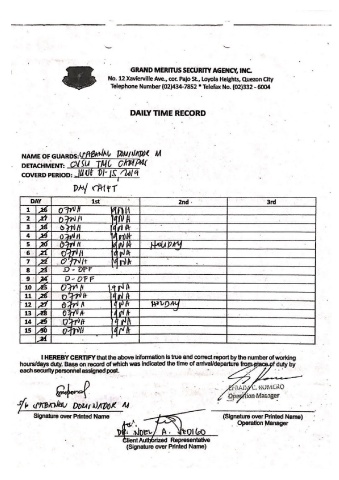 GRAND MERITUS SECURITY AGENCY, INC.
No. 12 Xavierville Ave., cor. Pajo St., Loyola Heights, Quezon City
Telephone Number (02)434-7852 * Telefax No. (02)332 - 6004
DAILY TIME RECORD
NAME OF GUARDS: DOMINADOR M
DETACHMENT: CVSU TMC
COVERD PERIOD: 01-15, 2019
DAY SHIFT
DAY 1st 2nd 3rd
1 16 07NH 19NH
2 17 07NH 19NA
3 18 07NH 19NA
4 19 07NH 19NH
5 20 07NH 19NA HOLIDAY
6 21 07NA 19NA
7 22 07NH 19NA
8 23 D-OFF
9 24 D-OFF
10 25 07NA 19NA
11 26 07NH 19NA
12 27 07NA 19NA HOLIDAY
13 28 07NA 19NA
14 29 07NH 19NA
15 30 07NH 19NA
31
I HEREBY CERTIFY that the above information is true and correct report by the number of working
hours/days duty. Base on record of which was indicated the time of arrival/departure from place of duty by
each security personnel assigned post.
C. ROMERO
Operation Manager
DOMINADOR M
Signature over Printed Name)
(Signature over Printed Name)
Operation Manager
DR. NOEL A. SEDIGO
Client Authorized Representative
(Signature over Printed Name)